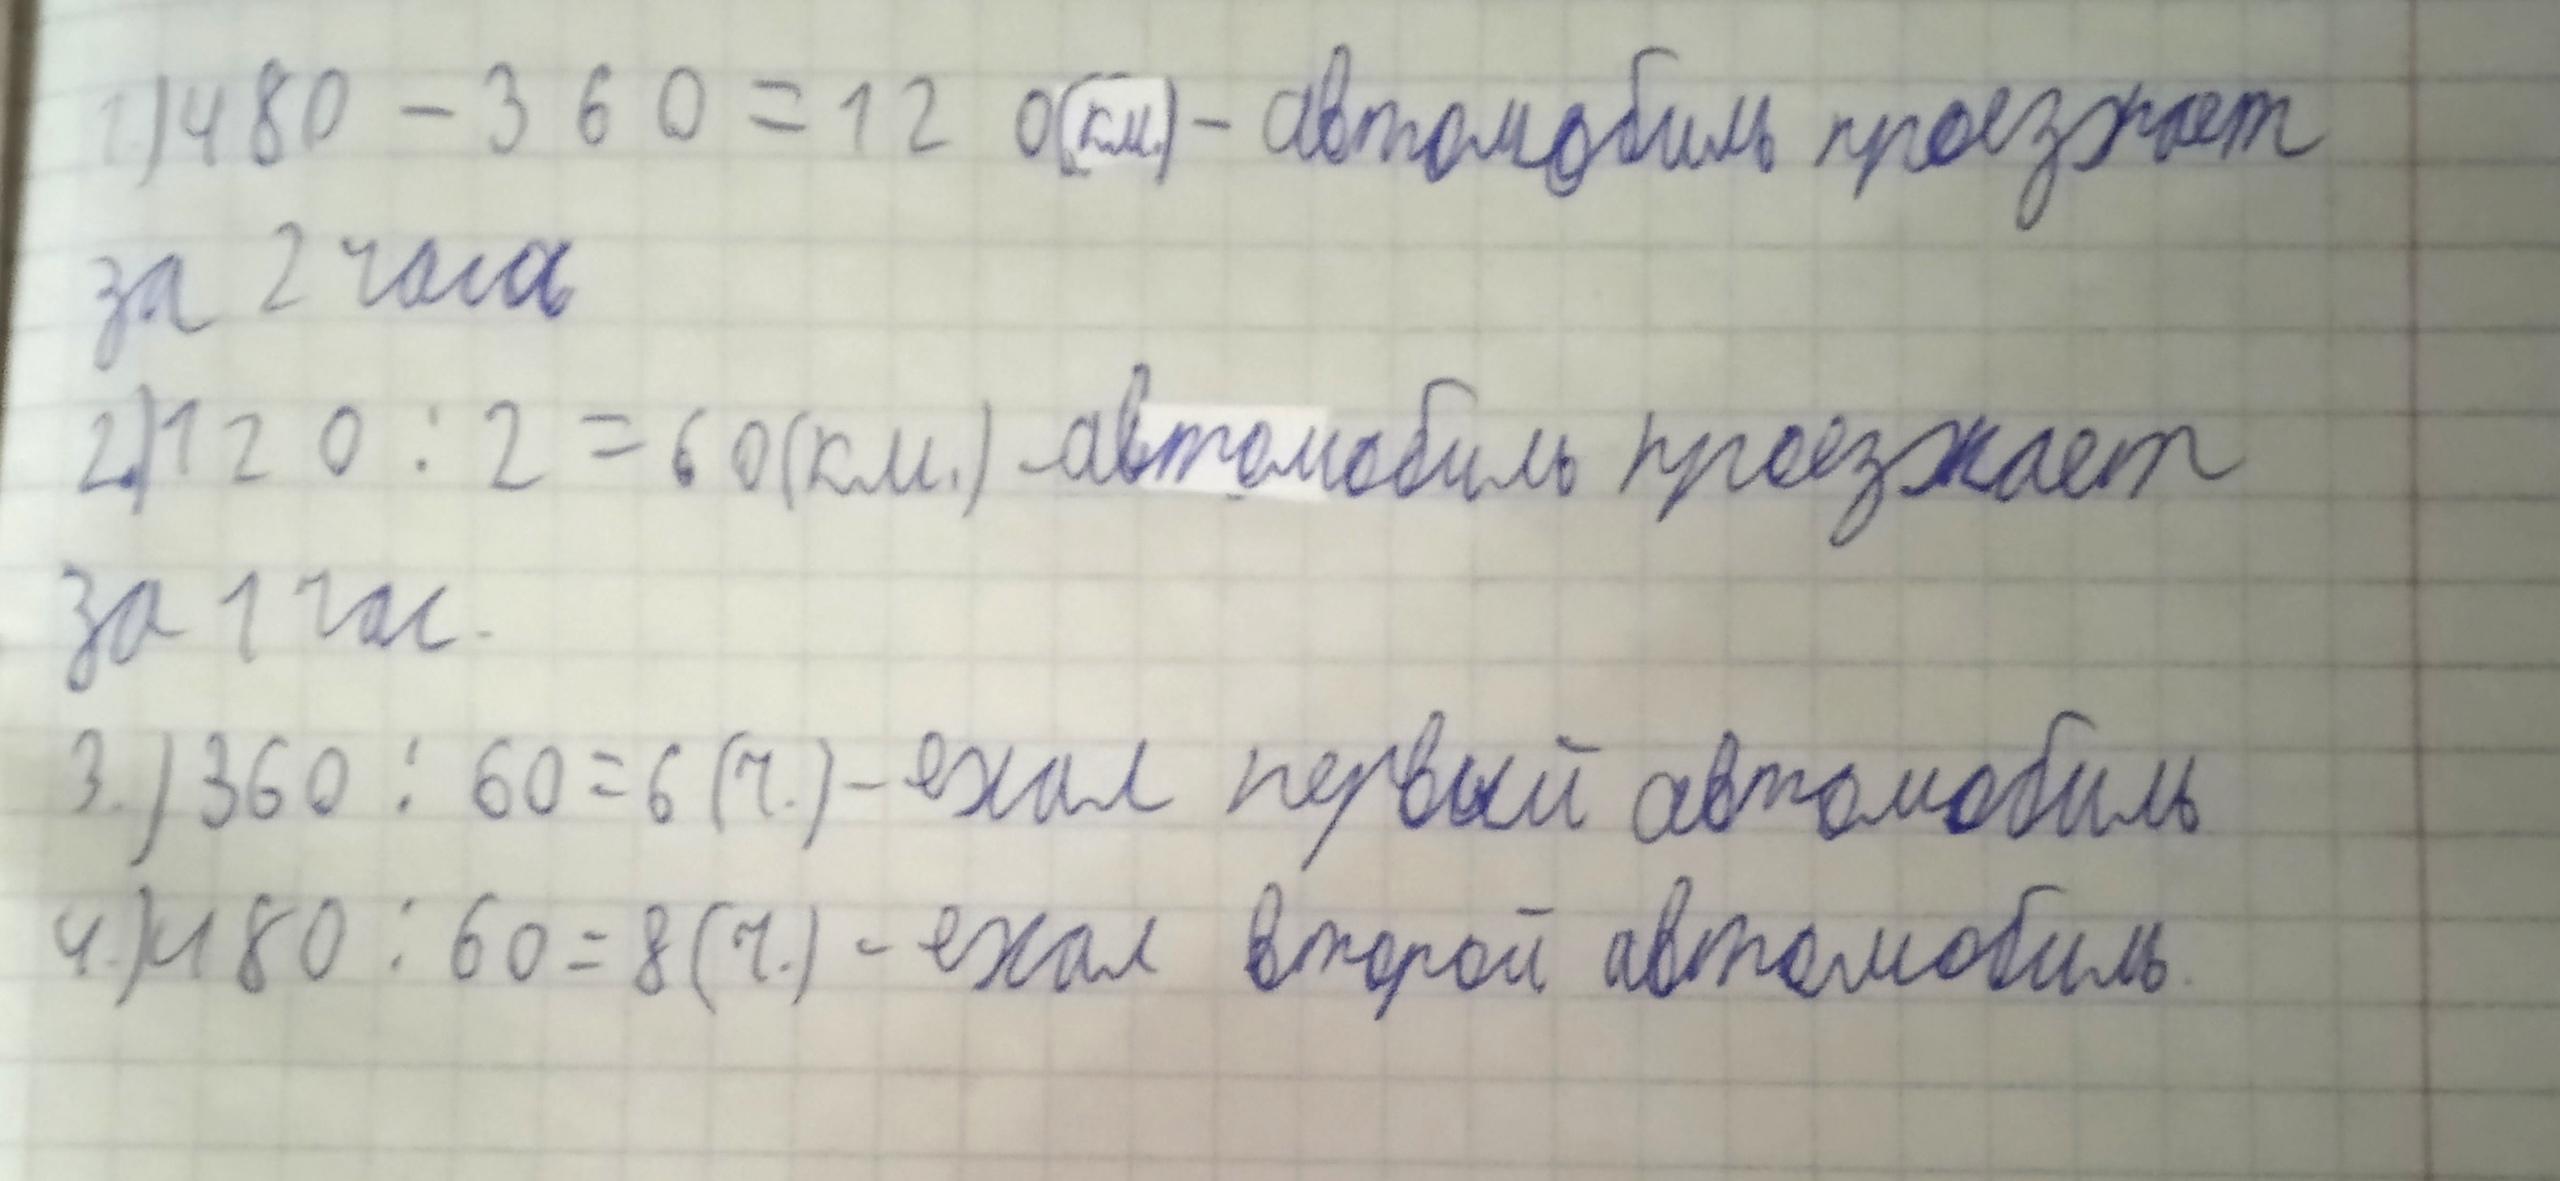 1.) 480 - 360 = 120 (км.) - автомобиль проезжает
за 2 часа
2.) 120 : 2 = 60 (км.) - автомобиль проезжает
за 1 час.
3.) 360 : 60 = 6 (ч.) - ехал первый автомобиль
4.) 480 : 60 = 8 (ч.) - ехал второй автомобиль.